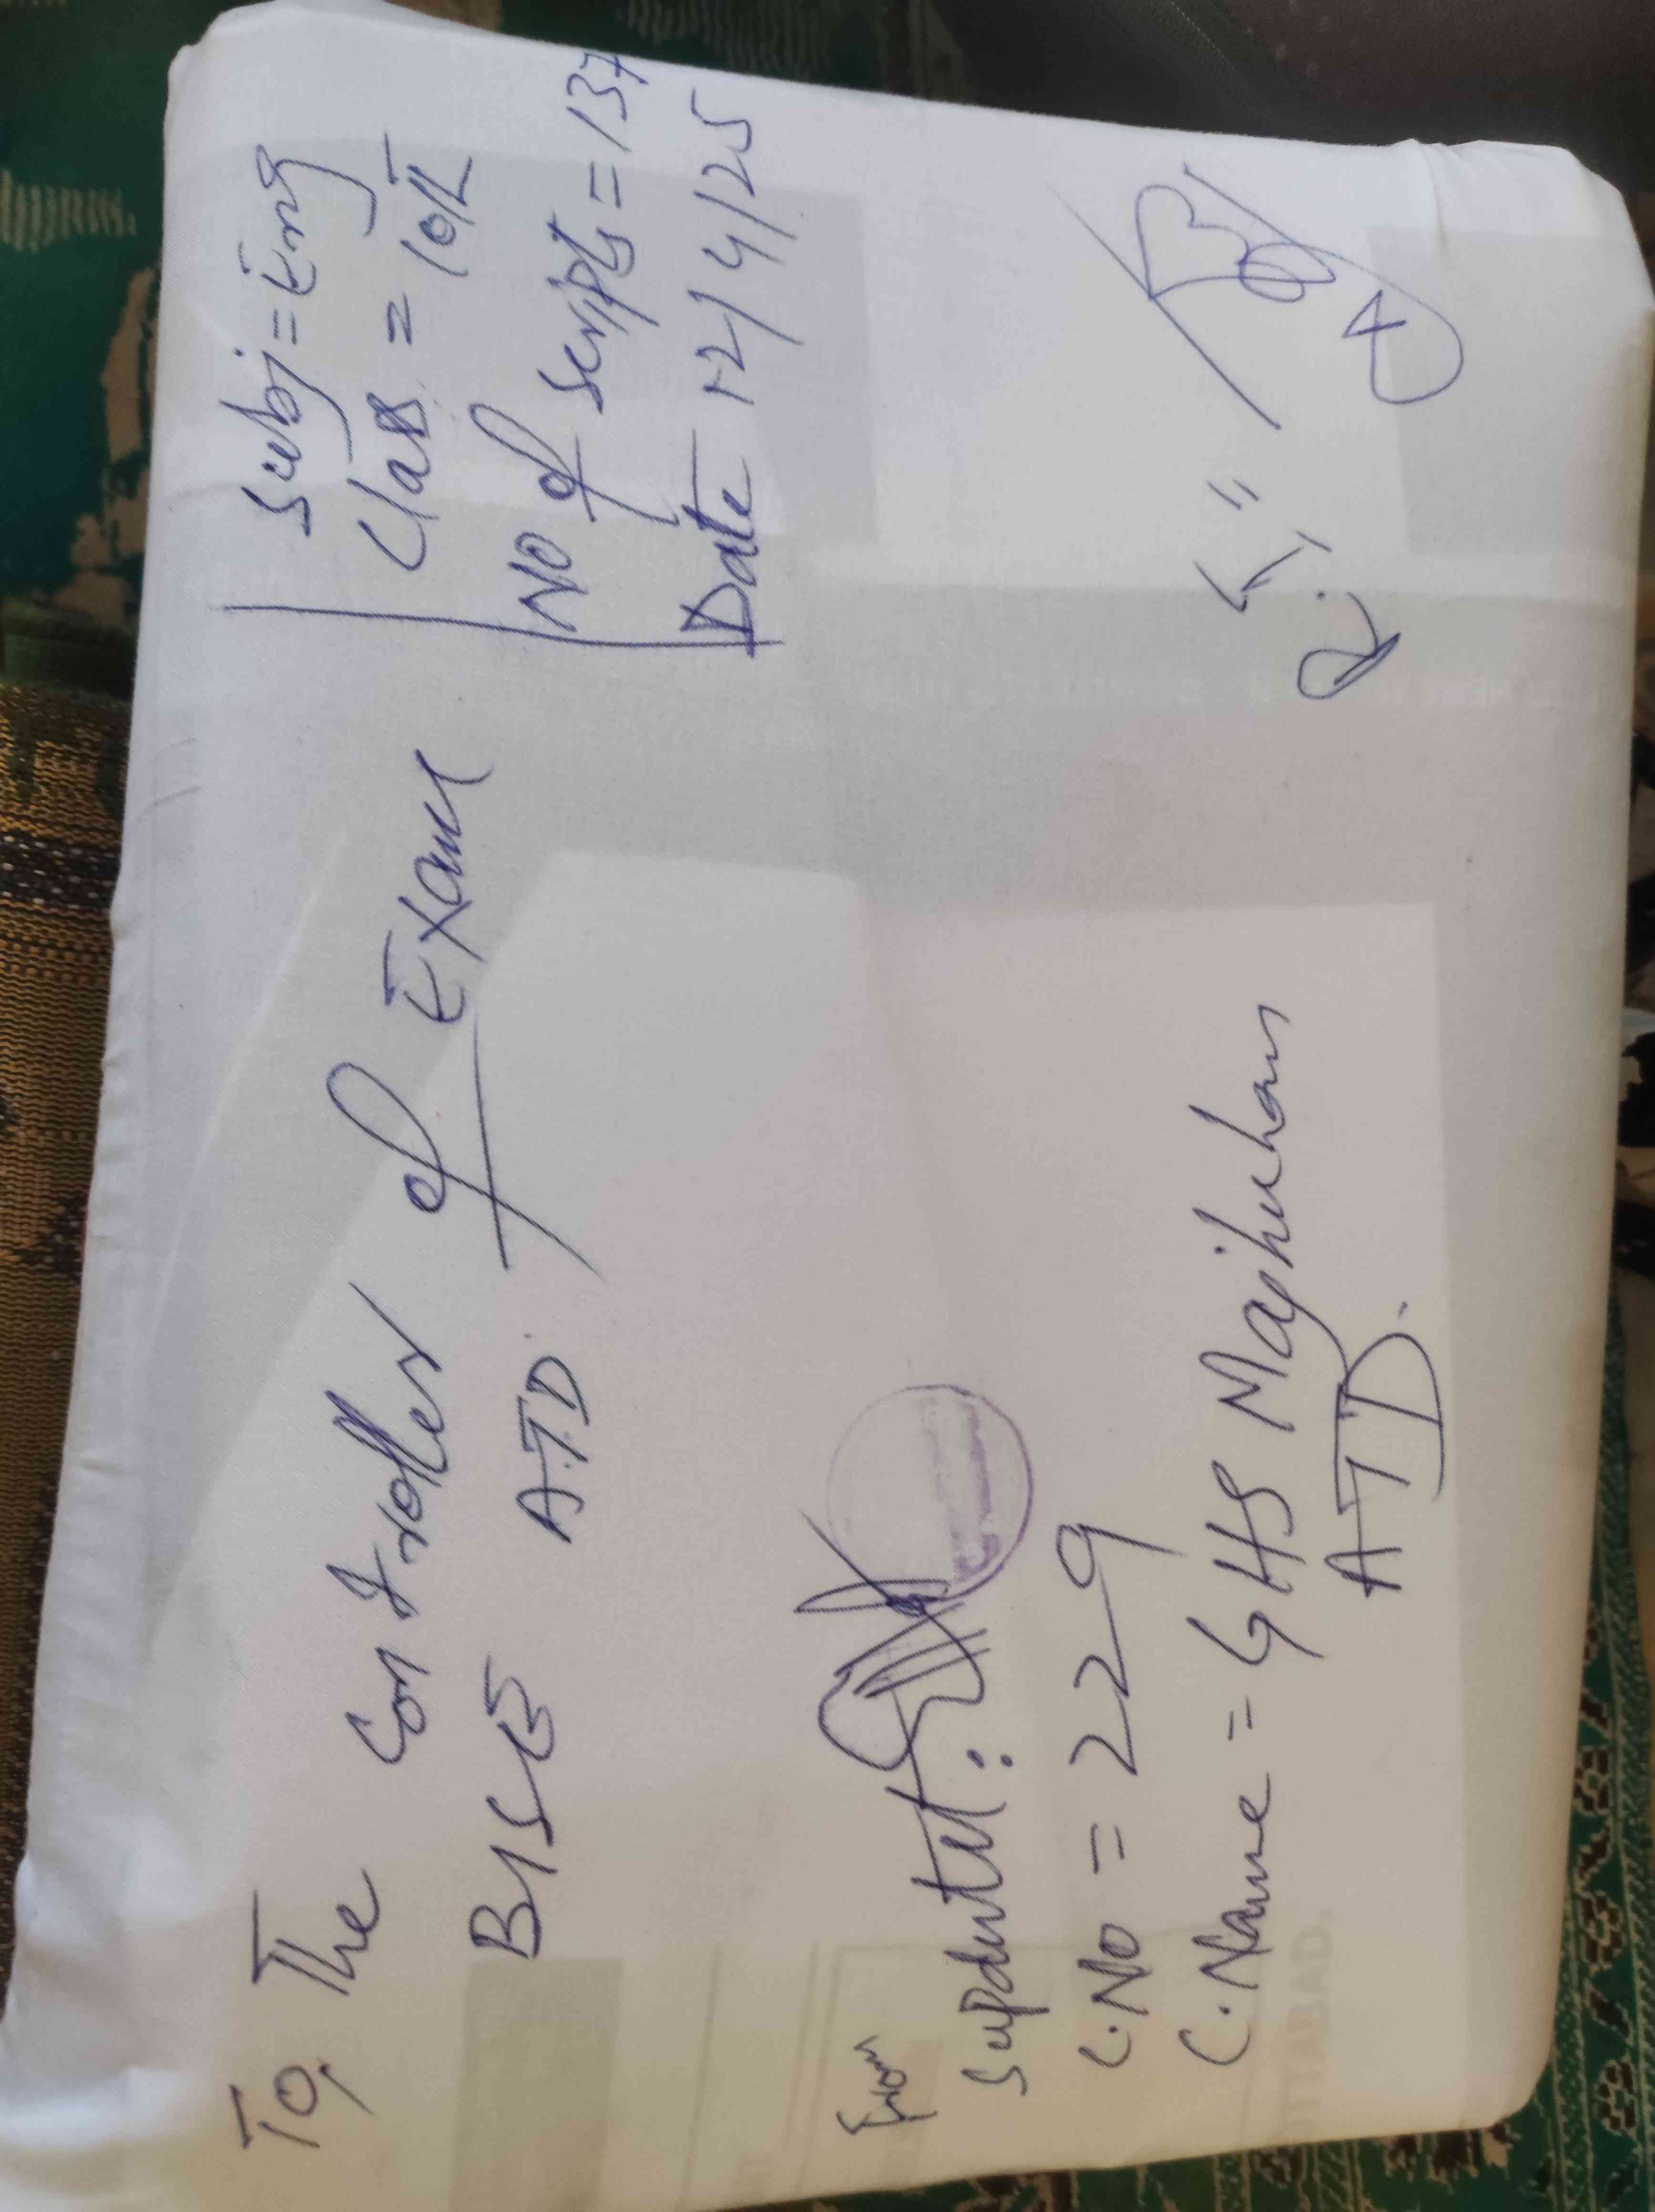 To, The Controller of Exam
BISE A.T.D.
Subj = Eng
Class = 10th
No of scripts = 137
Date 12/4/25
From
Supdntet:
C.No = 229
C.Name = GHS Majihuhan
ATD.